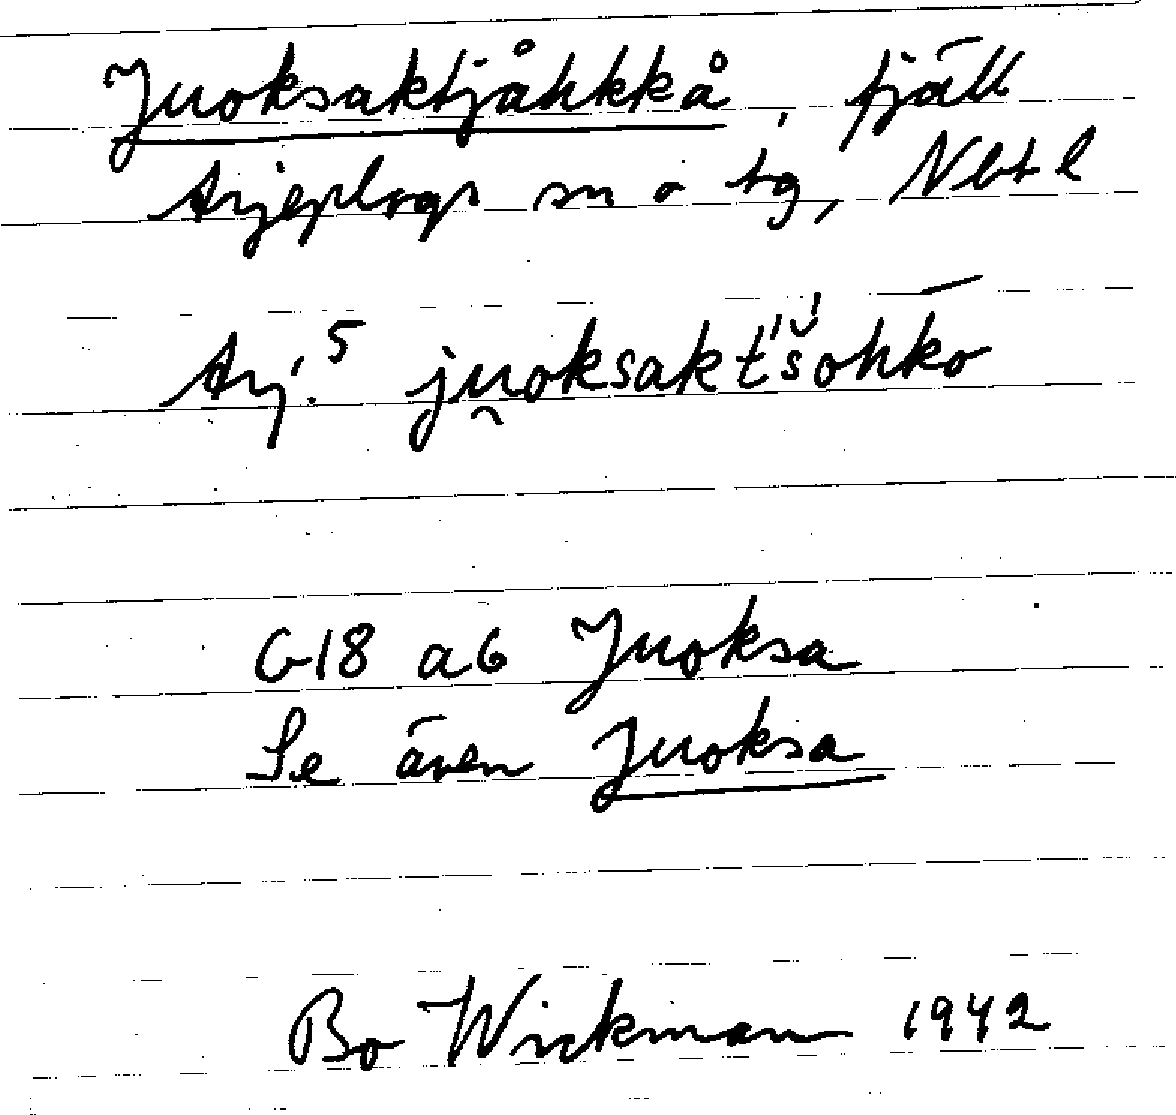 Juoksaktjåhkkå, fjäll
Arjeplogs sn o tg, Nbt l
Arj.⁵ ju̯oksaktʹšʹohkō
G18 a6 Juoksa
Se även Juoksa
Bo Wickman 1942